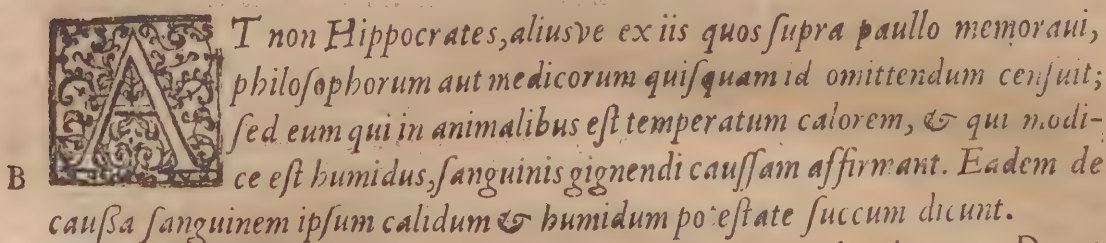 AT non Hippocrates, aliusve ex iis quos ſupra paullo memoraui,
philoſophorum aut medicorum quiſquam id omittendum cenſuit;
ſed eum qui in animalibus eſt temperatum calorem, & qui modi-
B ce eſt humidus, ſanguinis gignendi cauſſam affirmant. Eadem de
cauſſa ſanguinem ipſum calidum & humidum poteſtate ſuccum dicunt.